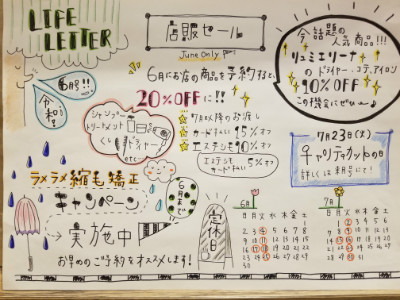 LIFE
LETTER
6月号!!
令和!
店販セール
June Only
6月にお店の商品を予約すると、
20%OFFに!!
シャンプー
トリートメント
くし
ドライヤー
etc...
7月以降のお渡し
カード払い 15%オフ
エステシモ 10%オフ
エステシモ
カード払い 5%オフ
今話題の
人気商品!!!
リュミエリーナ
のドライヤー、コテ、アイロン
10%OFF
この機会にぜひ
7月23日(火)
チャリティカットの日
詳しくは来月号にて!
ラメラメ縮毛矯正
キャンペーン
6月末まで
→実施中
お早めのご予約をオススメします!
定休日
6月
日月火水木金土
1
2 3 4 5 6 7 8
9 10 11 12 13 14 15
16 17 18 19 20 21 22
23 24 25 26 27 28 29
30
7月
日月火水木金土
1 2 3 4 5 6
7 8 9 10 11 12 13
14 15 16 17 18 19 20
21 22 23 24 25 26 27
28 29 30 31